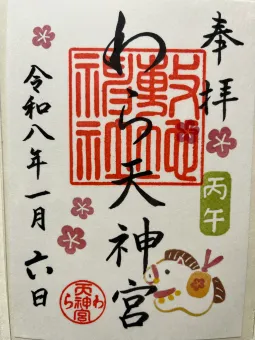 奉拝
丙午
わら天神宮
敷地神社
令和八年一月六日
わら天神宮